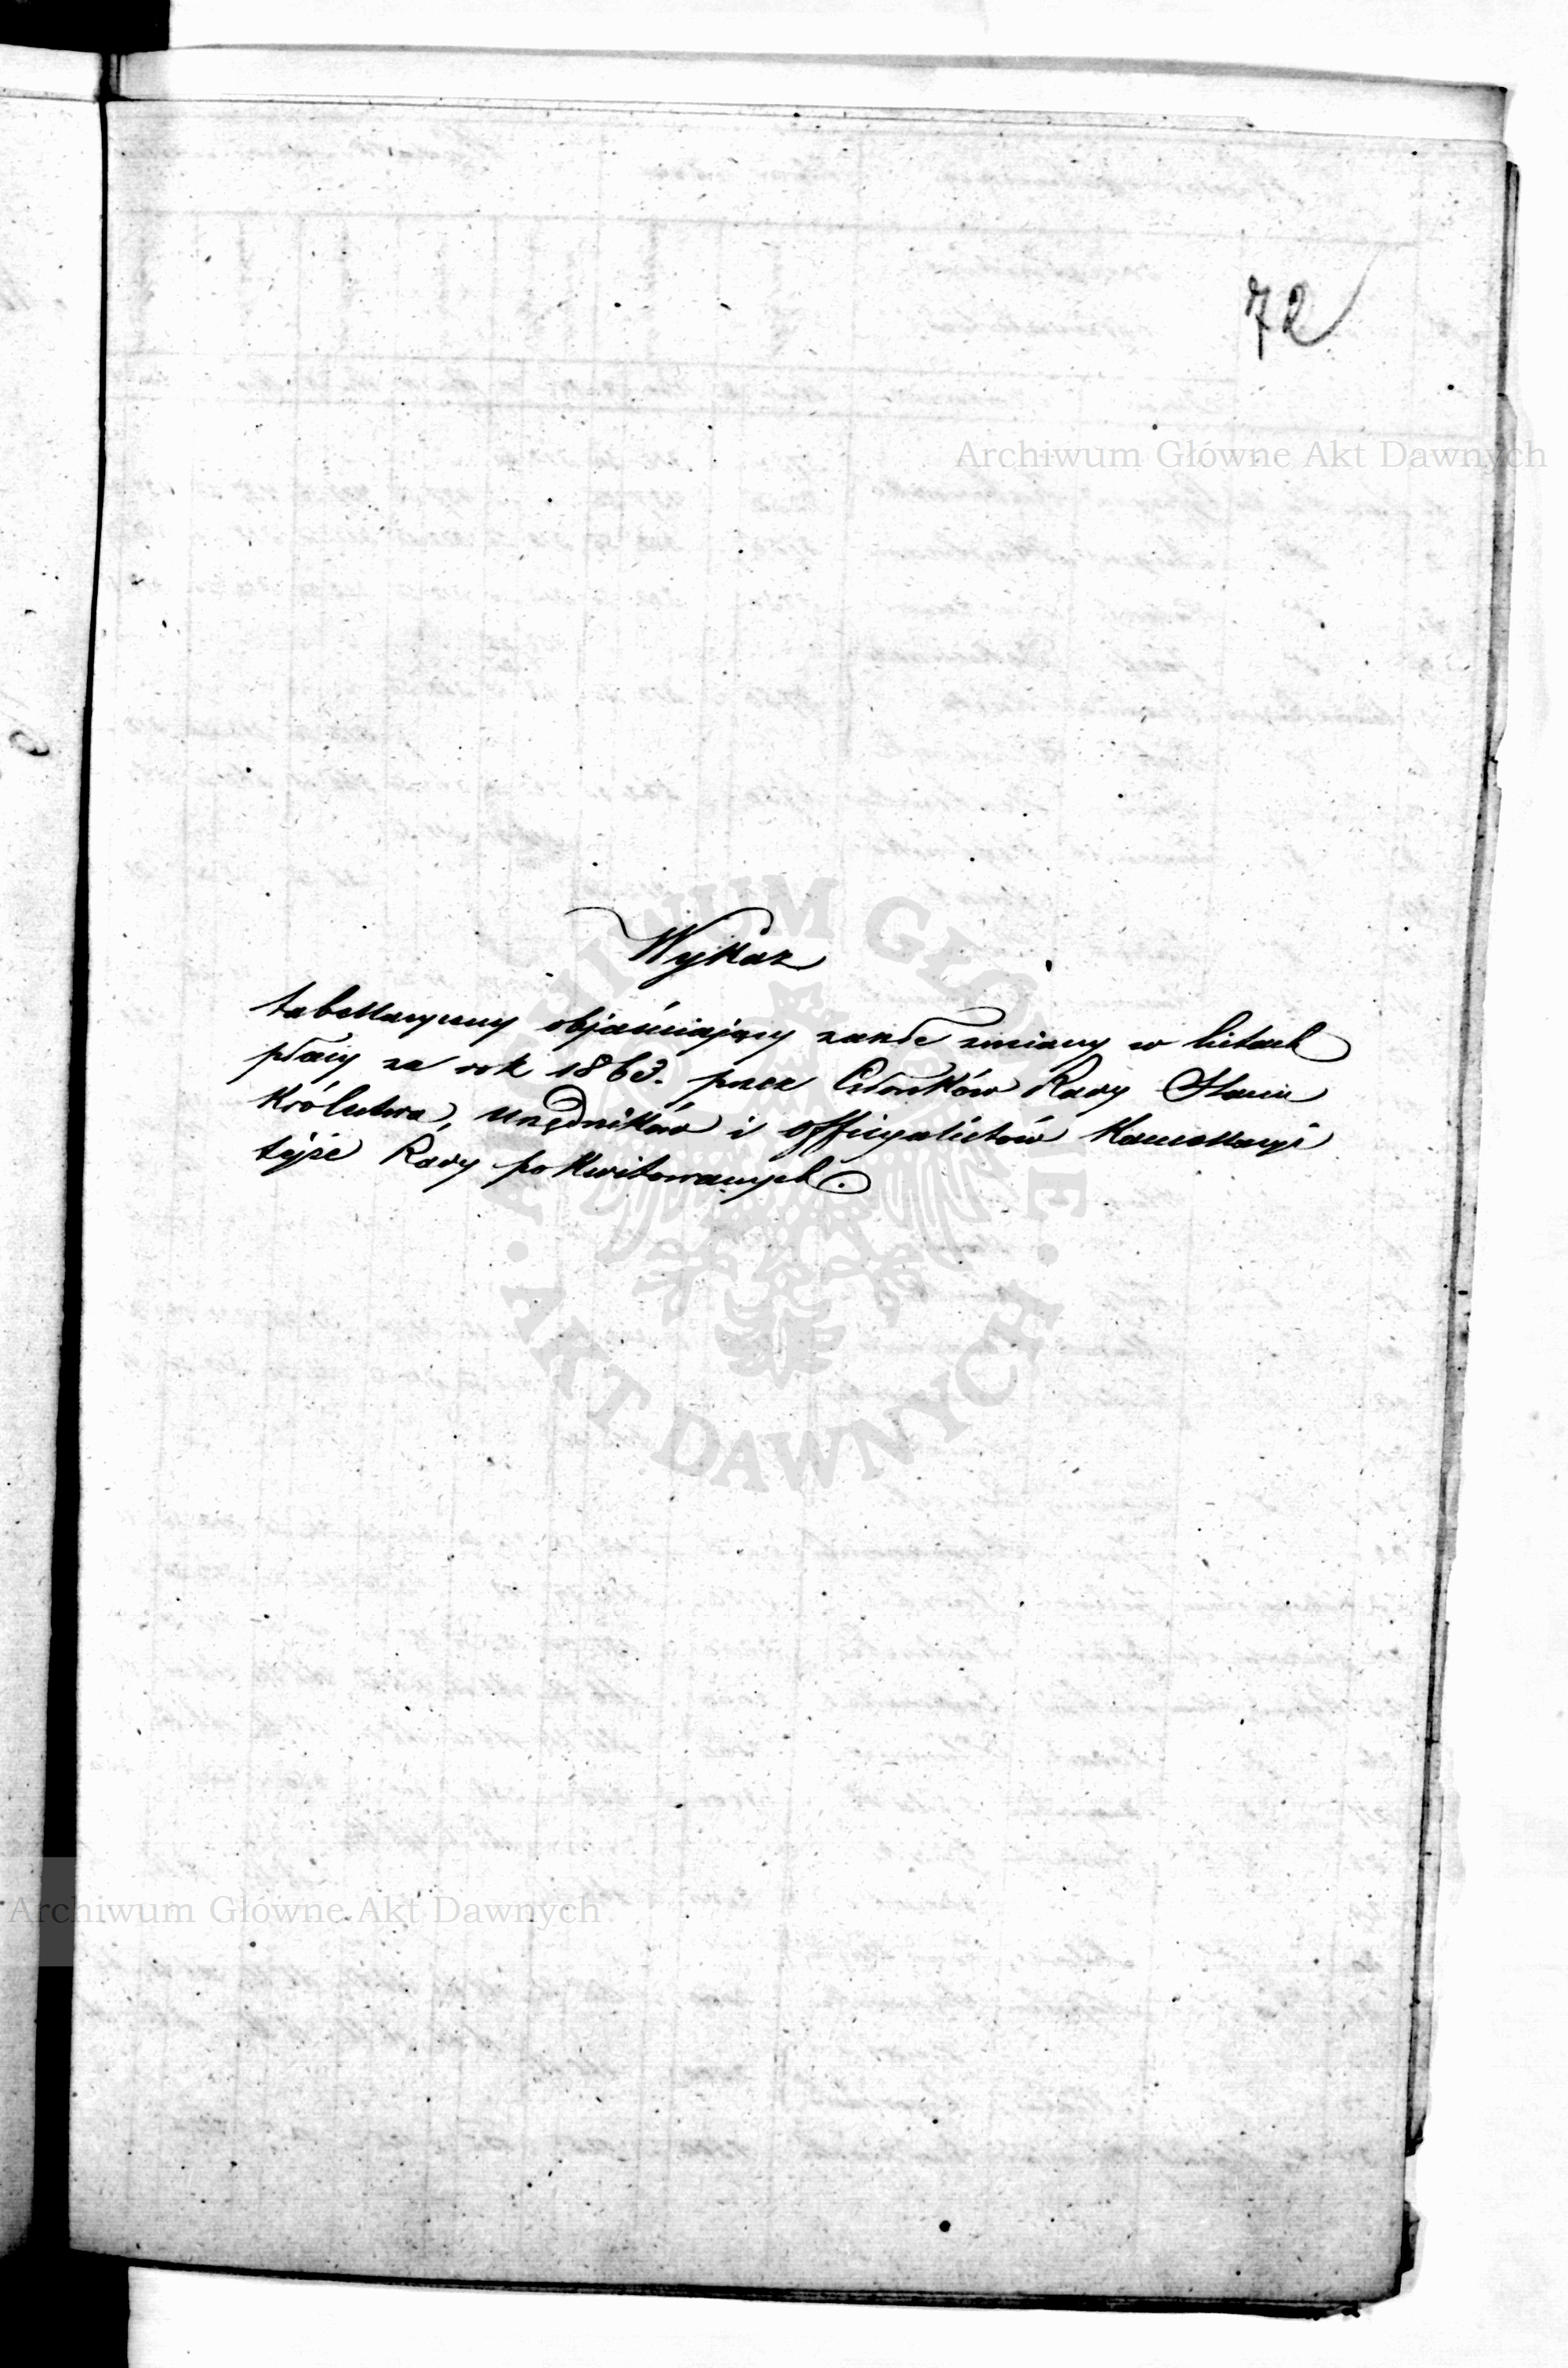 72
Archiwum Główne Akt Dawnych
Wykaz
tabellaryczny objaśniający zaszłe zmiany w listach
płacy za rok 1863. przez Członków Rady Stanu
Królestwa, Urzędników i officyalistów Kancellaryi
tejże Rady pokwitowanych.
ARCHIWUM GŁÓWNE · AKT DAWNYCH ·
Archiwum Główne Akt Dawnych